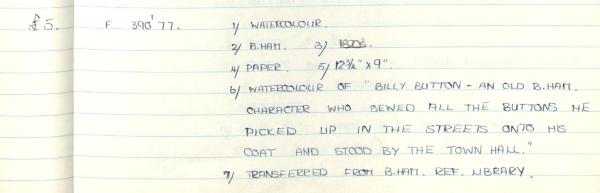 £5. F. 390'77. 1/ WATERCOLOUR.
2/ B.HAM. 3/ 1820's.
4/ PAPER. 5/ 12¾" x 9".
6/ WATERCOLOUR OF "BILLY BUTTON - AN OLD B.HAM.
CHARACTER WHO SEWED ALL THE BUTTONS HE
PICKED UP IN THE STREETS ONTO HIS
COAT AND STOOD BY THE TOWN HALL."
7/ TRANSFERRED FROM B.HAM. REF. LIBRARY.